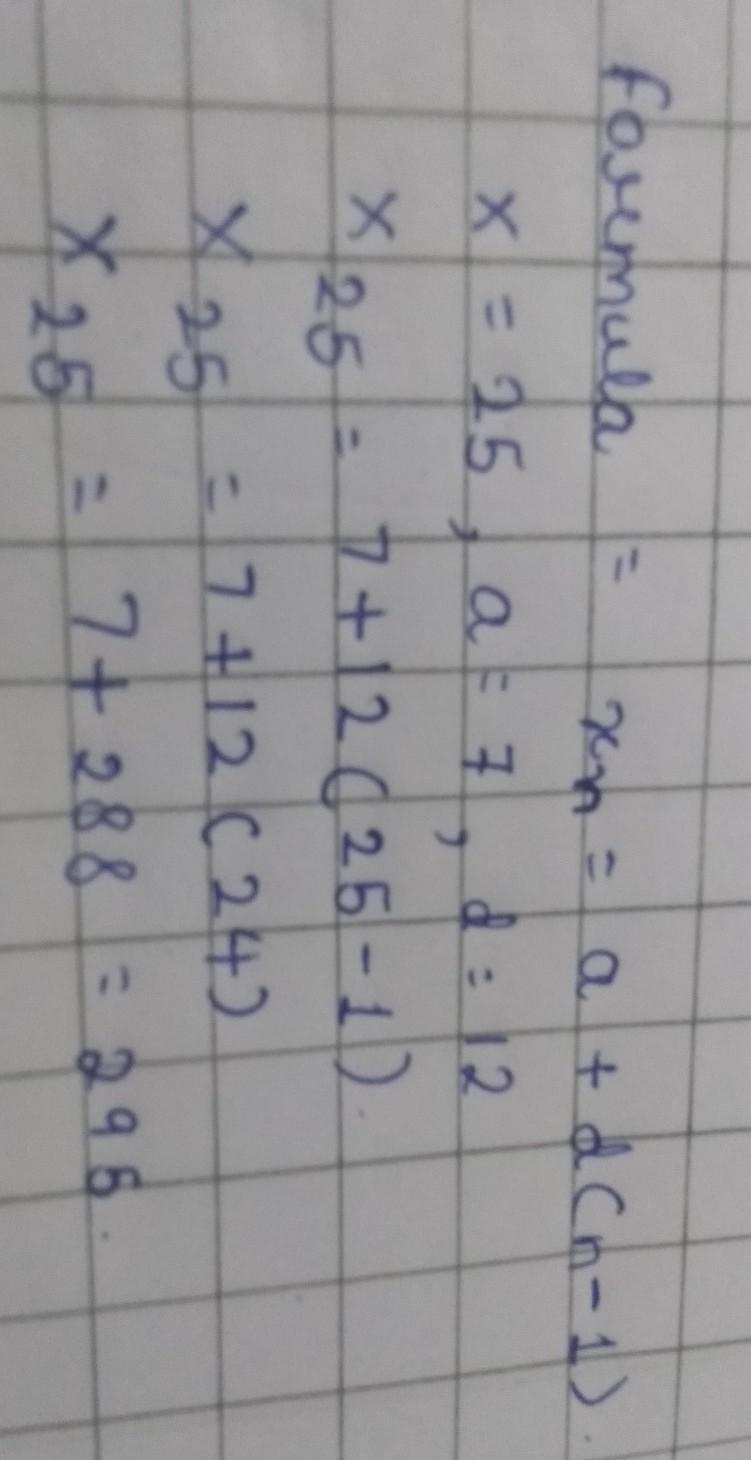 formula = xn = a + d(n-1).
x = 25, a = 7, d = 12
x25 = 7+12(25-1).
x25 = 7+12(24)
x25 = 7+288 = 295.